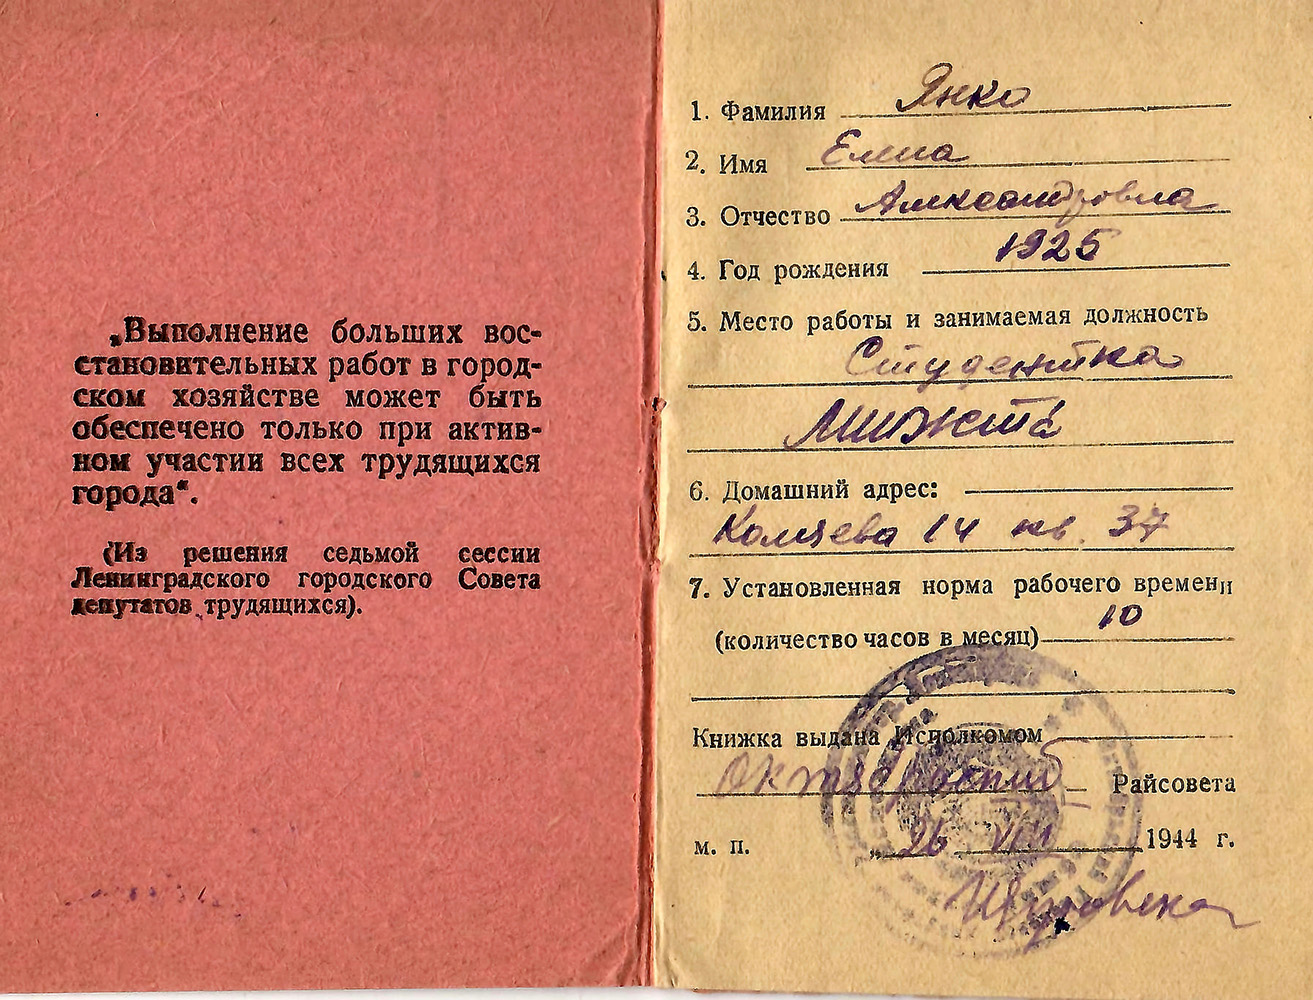 „Выполнение больших вос-
становительных работ в город-
ском хозяйстве может быть
обеспечено только при актив-
ном участии всех трудящихся
города“.
(Из решения седьмой сессии
Ленинградского городского Совета
депутатов трудящихся).
1. Фамилия Янко
2. Имя Елена
3. Отчество Александровна
4. Год рождения 1925
5. Место работы и занимаемая должность
Студентка
6. Домашний адрес:
14 кв. 37
7. Установленная норма рабочего времени
(количество часов в месяц) 10
Книжка выдана Исполкомом
Октябрьский Райсовета
м. п. „26 VIII 1944 г.